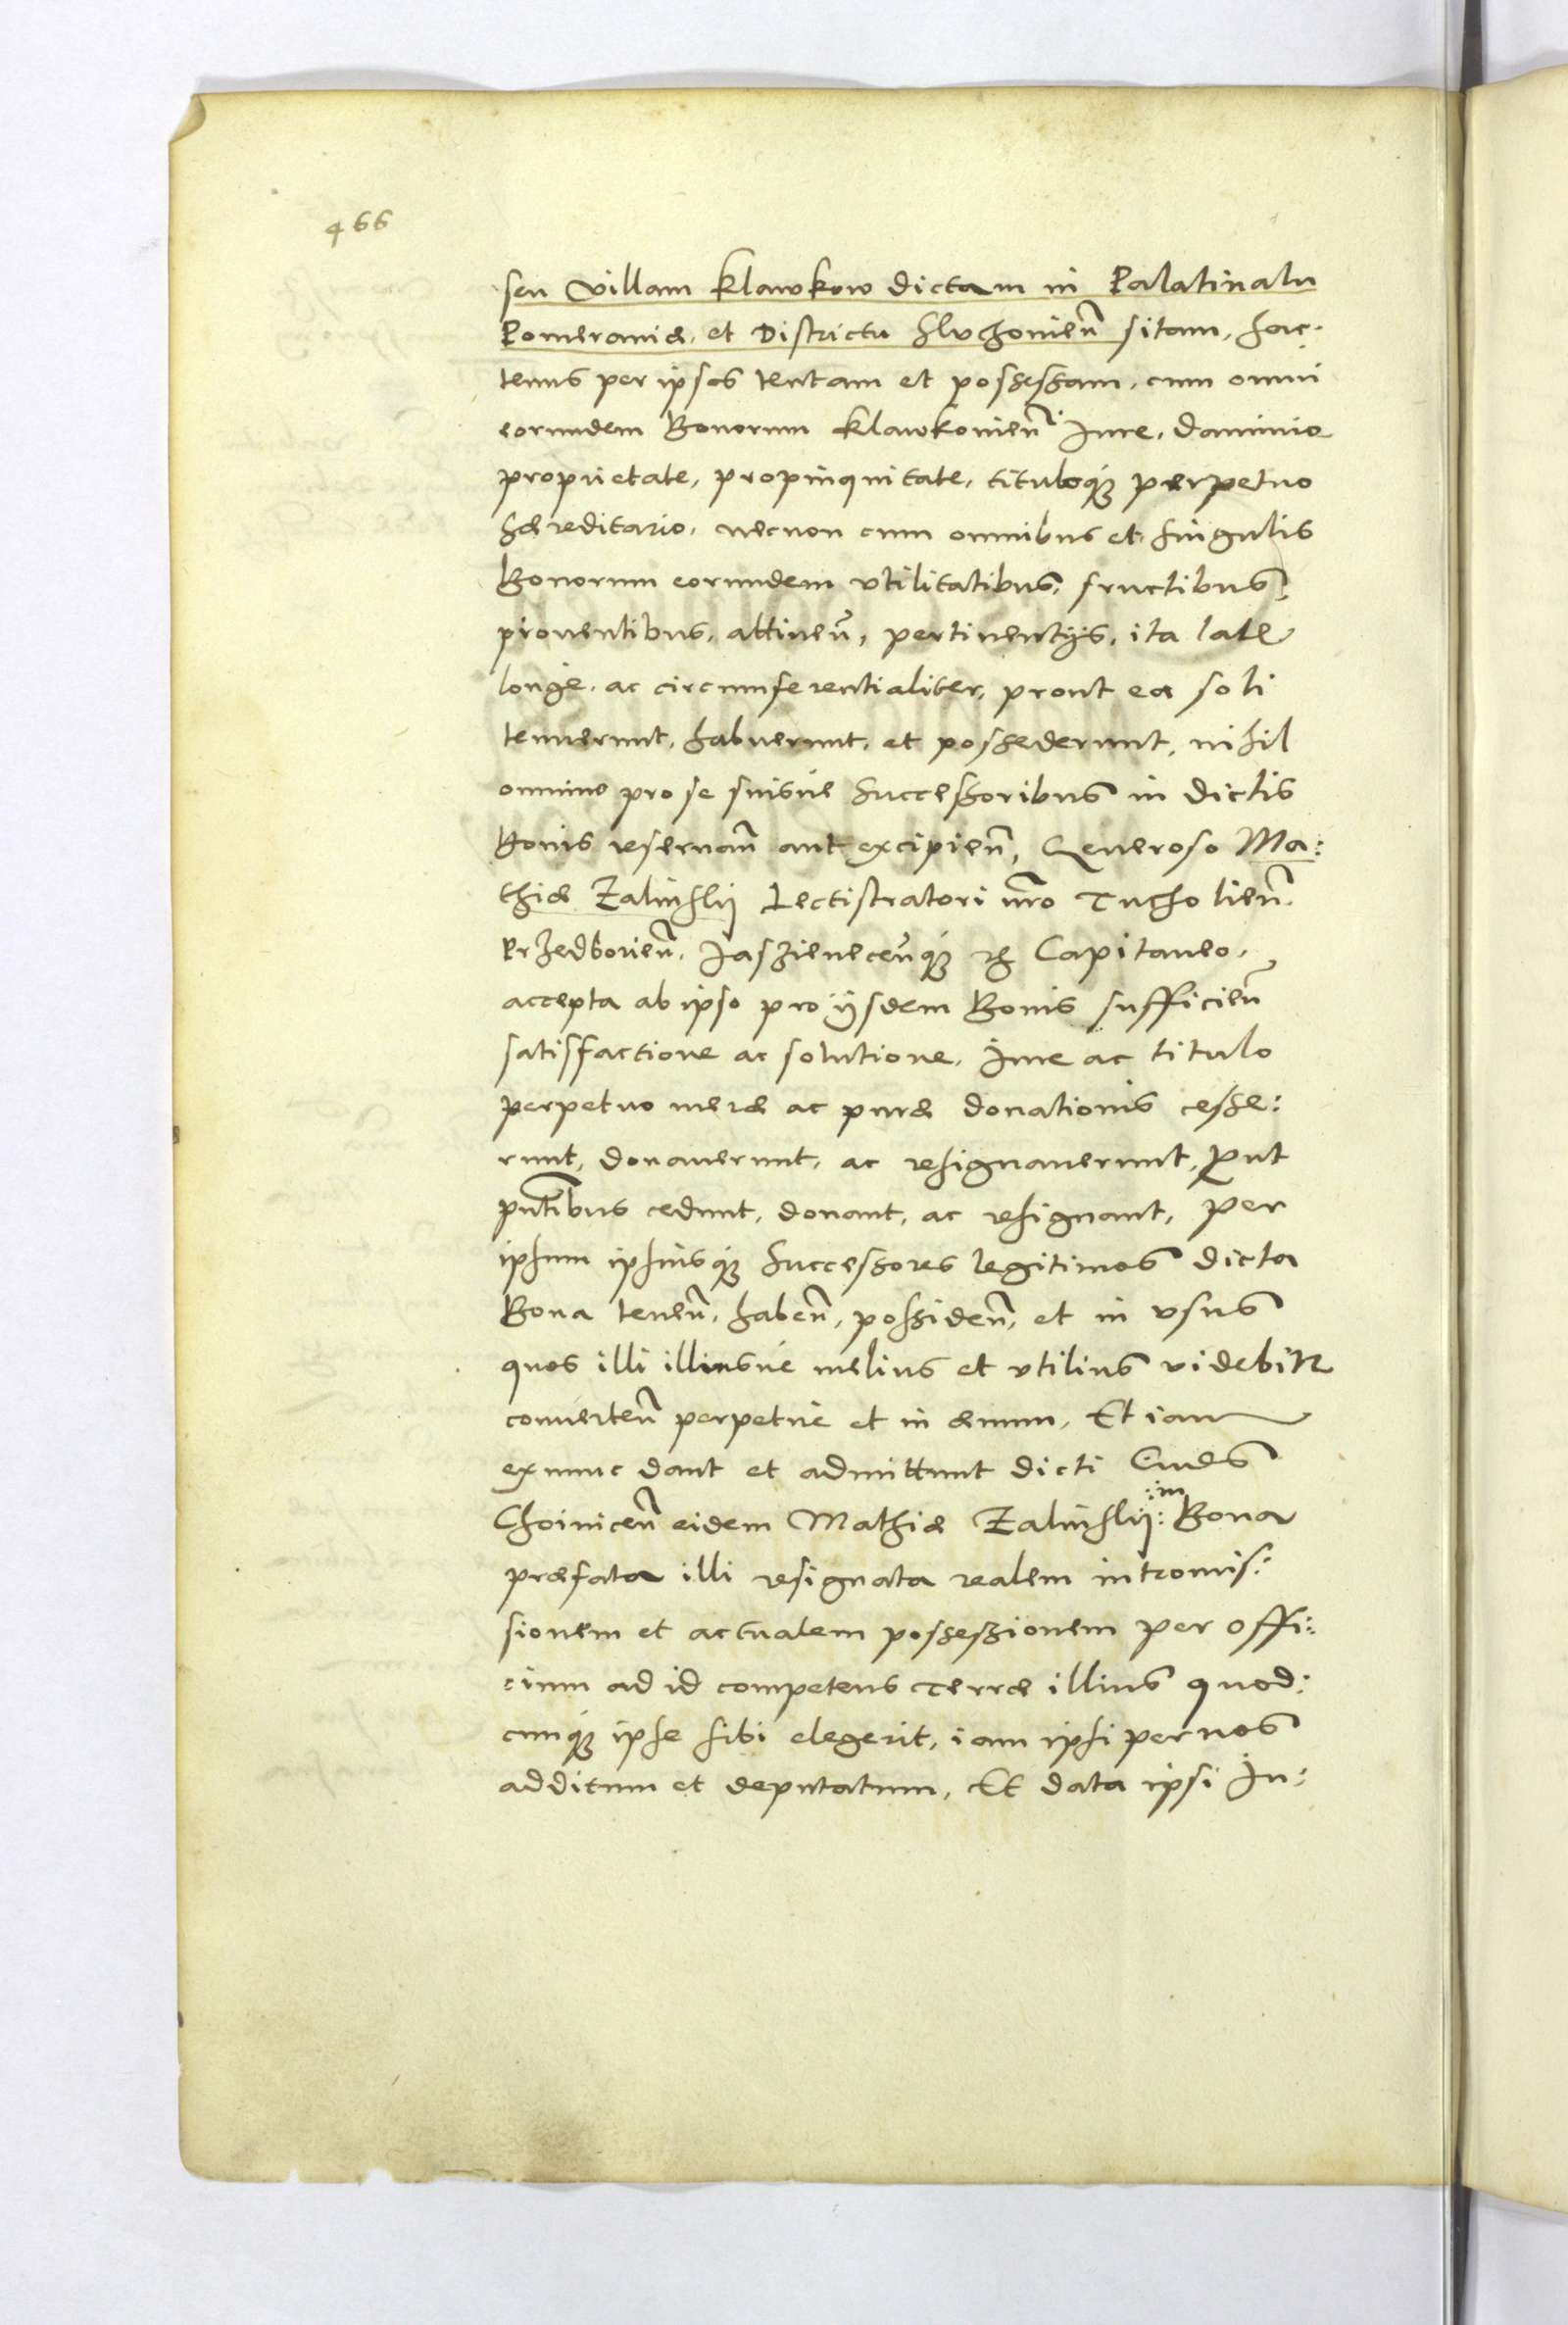 466
seu villam Klawkow dictam in Palatinatu
Pomeraniæ, et Districtu Sluchovień sitam, hac-
tenus per ipsos tentam et possessam, cum omni
eorundem Bonorum Klawkovień Iure, dominio
proprietate, propinquitate, tituloq́ꝫ perpetuo
hæreditario, necnon cum omnibus et singulis
Bonorum eorundem vtilitatibus, fructibus,
prouentibus, attineñ, pertinentijs, ita late
longè, ac circumferentialiter, prout ea soli
tenuerunt, habuerunt, et possederunt, nihil
omnino pro se suisuè Successoribus in dictis
Bonis reseruañ aut excipieñ, Generoso Ma:
thiæ Zalinslij Lectistratori nr̃o Tucholieñ.
Przedborieñ, Jaszieneceñq́ꝫ Capitaneo,
accepta ab ipso pro ijsdem Bonis sufficieñ
satisfactione ac solutione, Iure ac titulo
perpetuo meræ ac puræ donationis cesse:
runt, donauerunt, ac resignauerunt, ꝓut
pñtibus cedunt, donant, ac resignant, per
ipsum ipsiusq́ꝫ Successores legitimos dicta
Bona teneñ, habeñ, possideñ, et in vsus
quos illi illiusuè melius et vtilius videbitr
conuerteñ perpetuè et in æuum, Et iam
ex nunc dant et admittunt dicti Ciues
Choiniceñ eidem Mathiæ Zalinslij :in: Bona
præfata illi resignata realem intromis:
sionem et actualem possessionem per offi:
cium ad id competens Terræ illius quod:
cunq́ꝫ ipse sibi elegerit, iam ipsi per nos
additum et deputatum, Et data ipsi In: